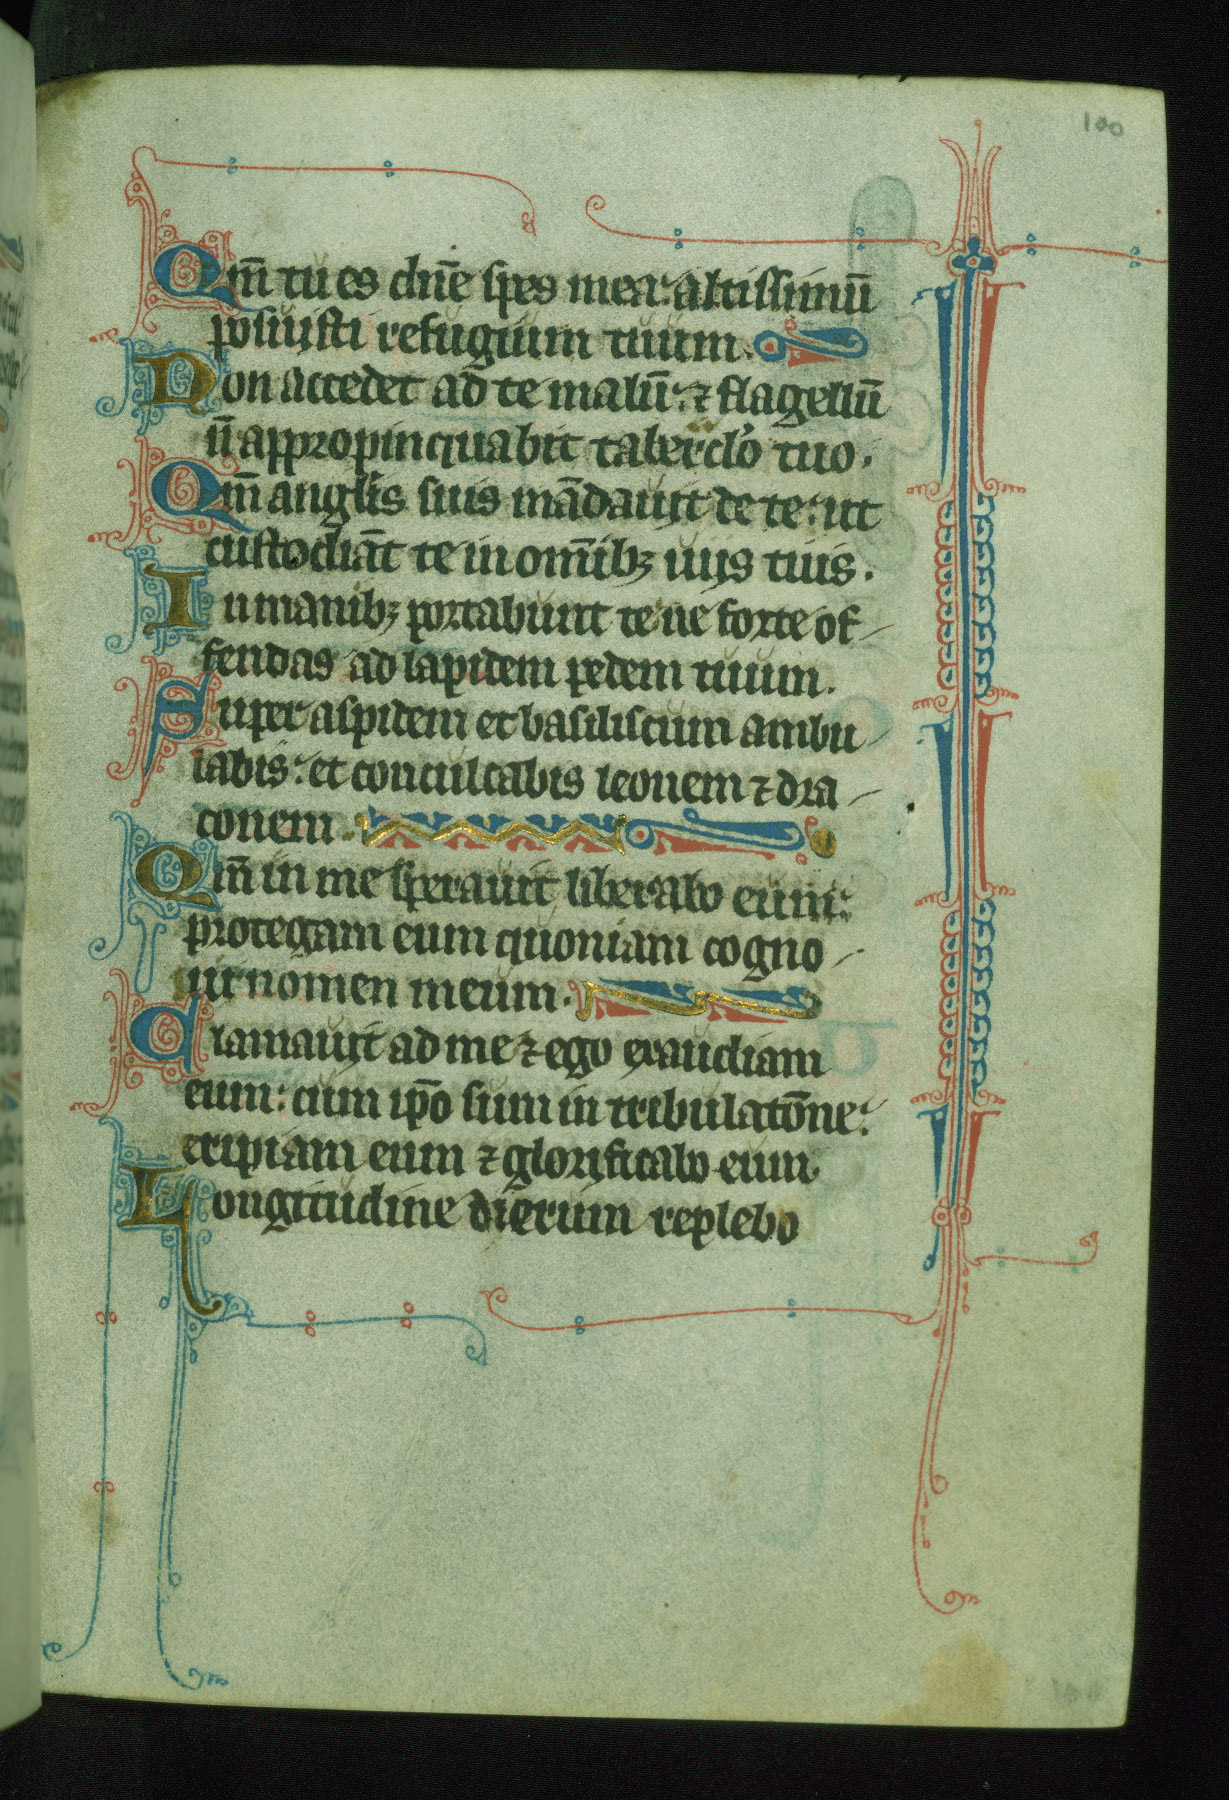 100
Qm̄ tu es dn̄e spes mea: altissimū
posuisti refugium tuum.
Non accedet ad te malū: ⁊ flagellū
n̄ appropinquabit tabercl̓o tuo.
Qm̄ angl̄is suis mādauit de te: ut
custodiāt te in om̄ibꝫ uijs tuis.
In manibꝫ portabunt te ne forte of
fendas ad lapidem pedem tuum.
Super aspidem et basiliscum ambu
labis: et conculcabis leonem ⁊ dra
conem.
Qm̄ in me sperauit liberabo eum:
protegam eum quoniam cogno
uit nomen meum.
Clamauit ad me ⁊ ego exaudiam
eum: cum ip̄o sum in tribulatōne:
eripiam eum ⁊ glorificabo eum.
Longitudine dierum replebo